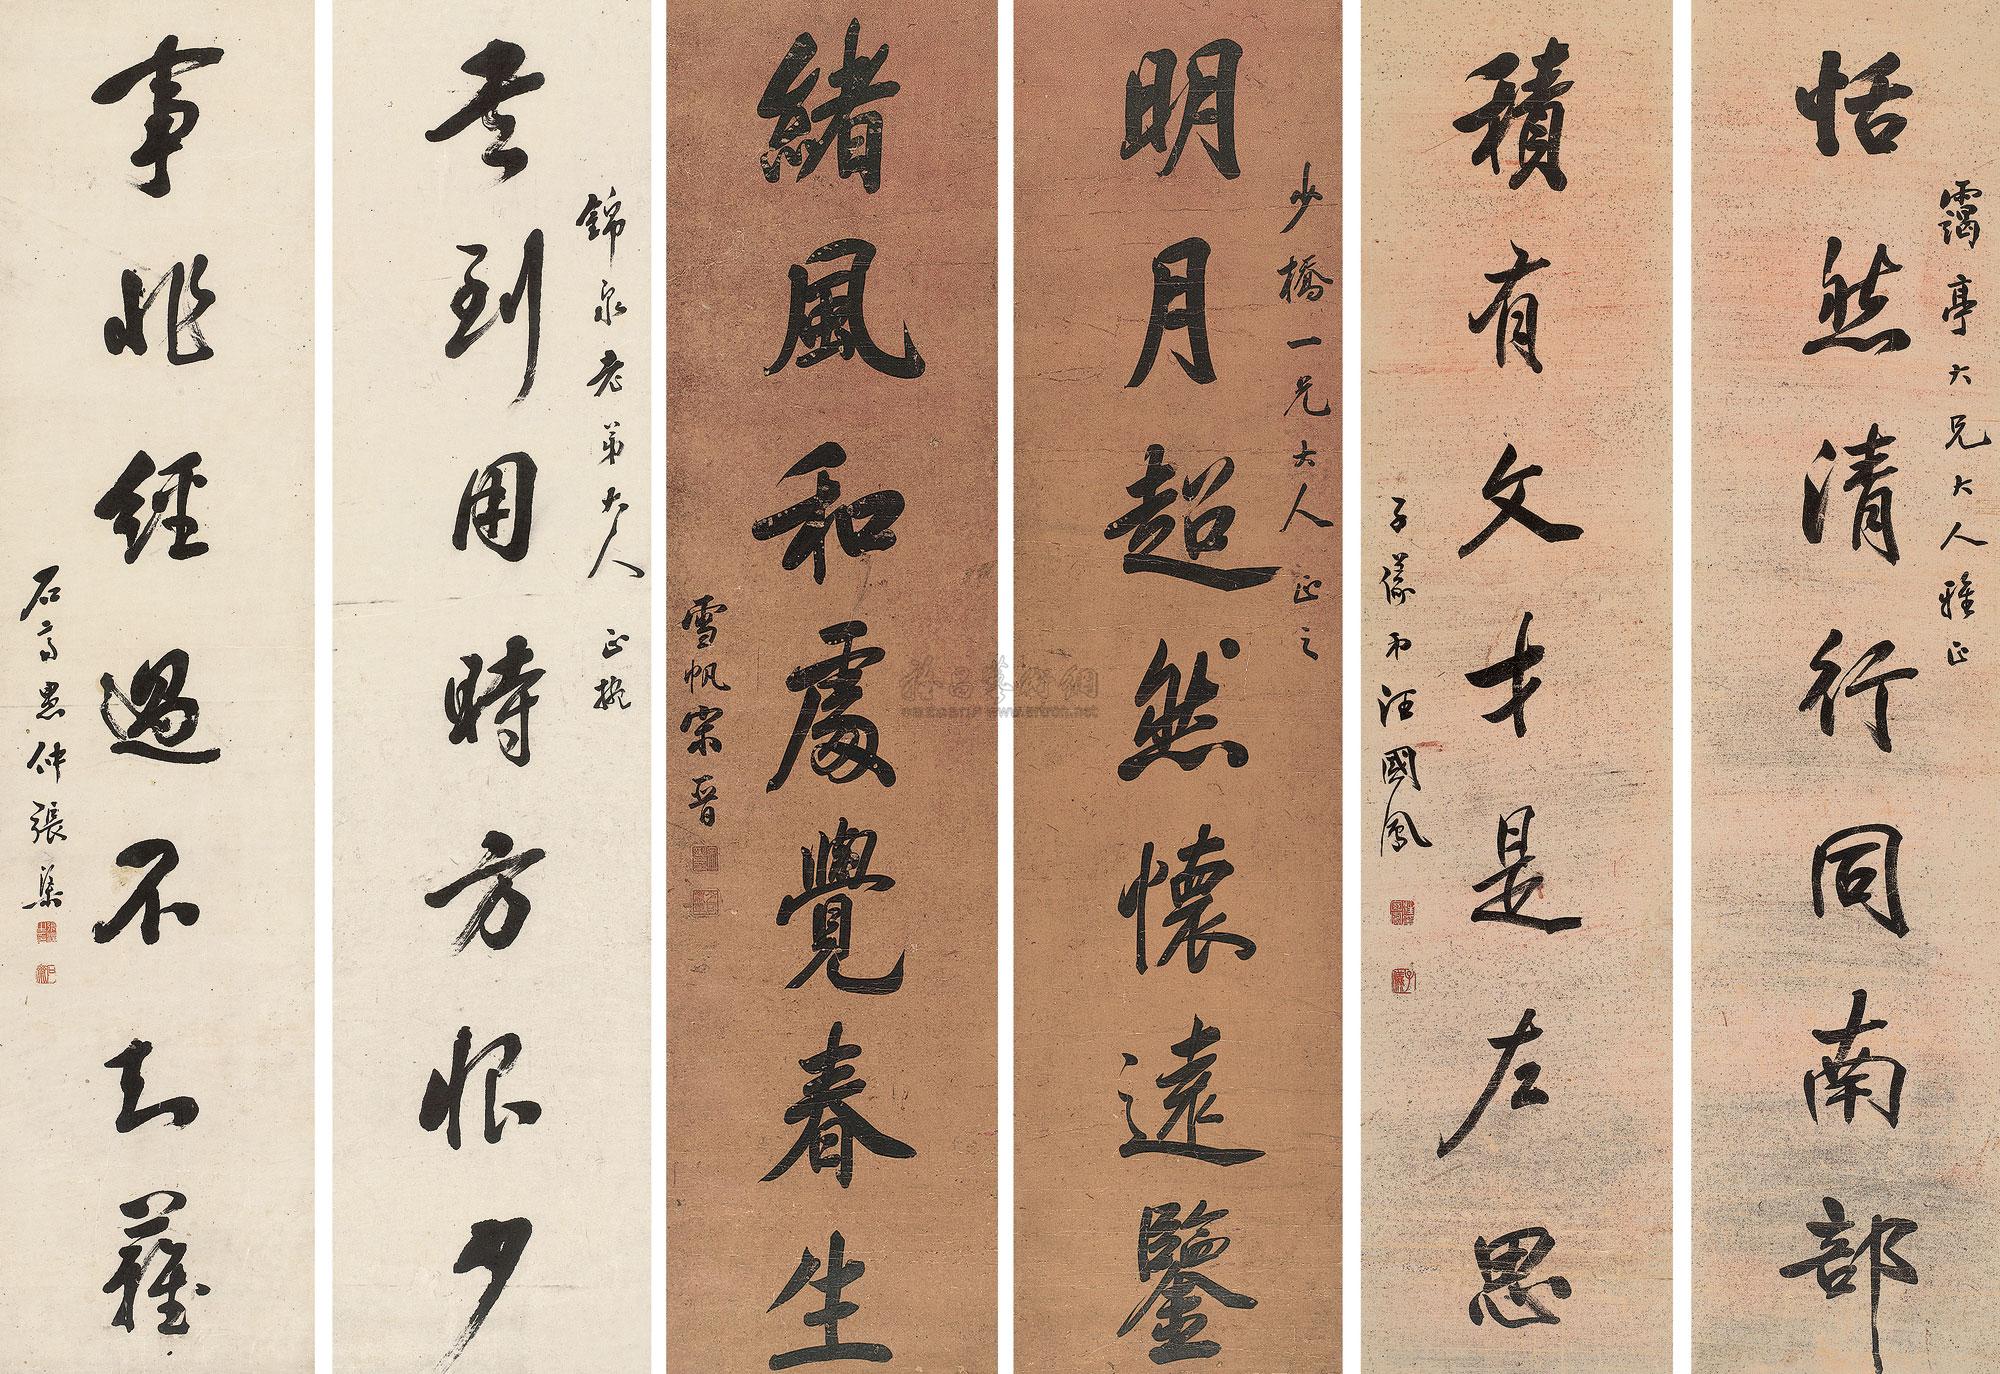 靄亭大兄大人雅正
恬然清行同南部
積有文才是左思
子儀弟汪國鳳
少橋一兄大人正之
明月超然懷遠鑒
緒風和處覺春生
雪帆宋晉
錦泉老弟大人正
書到用時方恨少
事非經過不知難
愚仲張
雅昌藝術網
www.artron.net